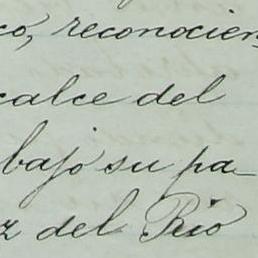 co, reconocien
calce del
bajo su pa-
z del Rio